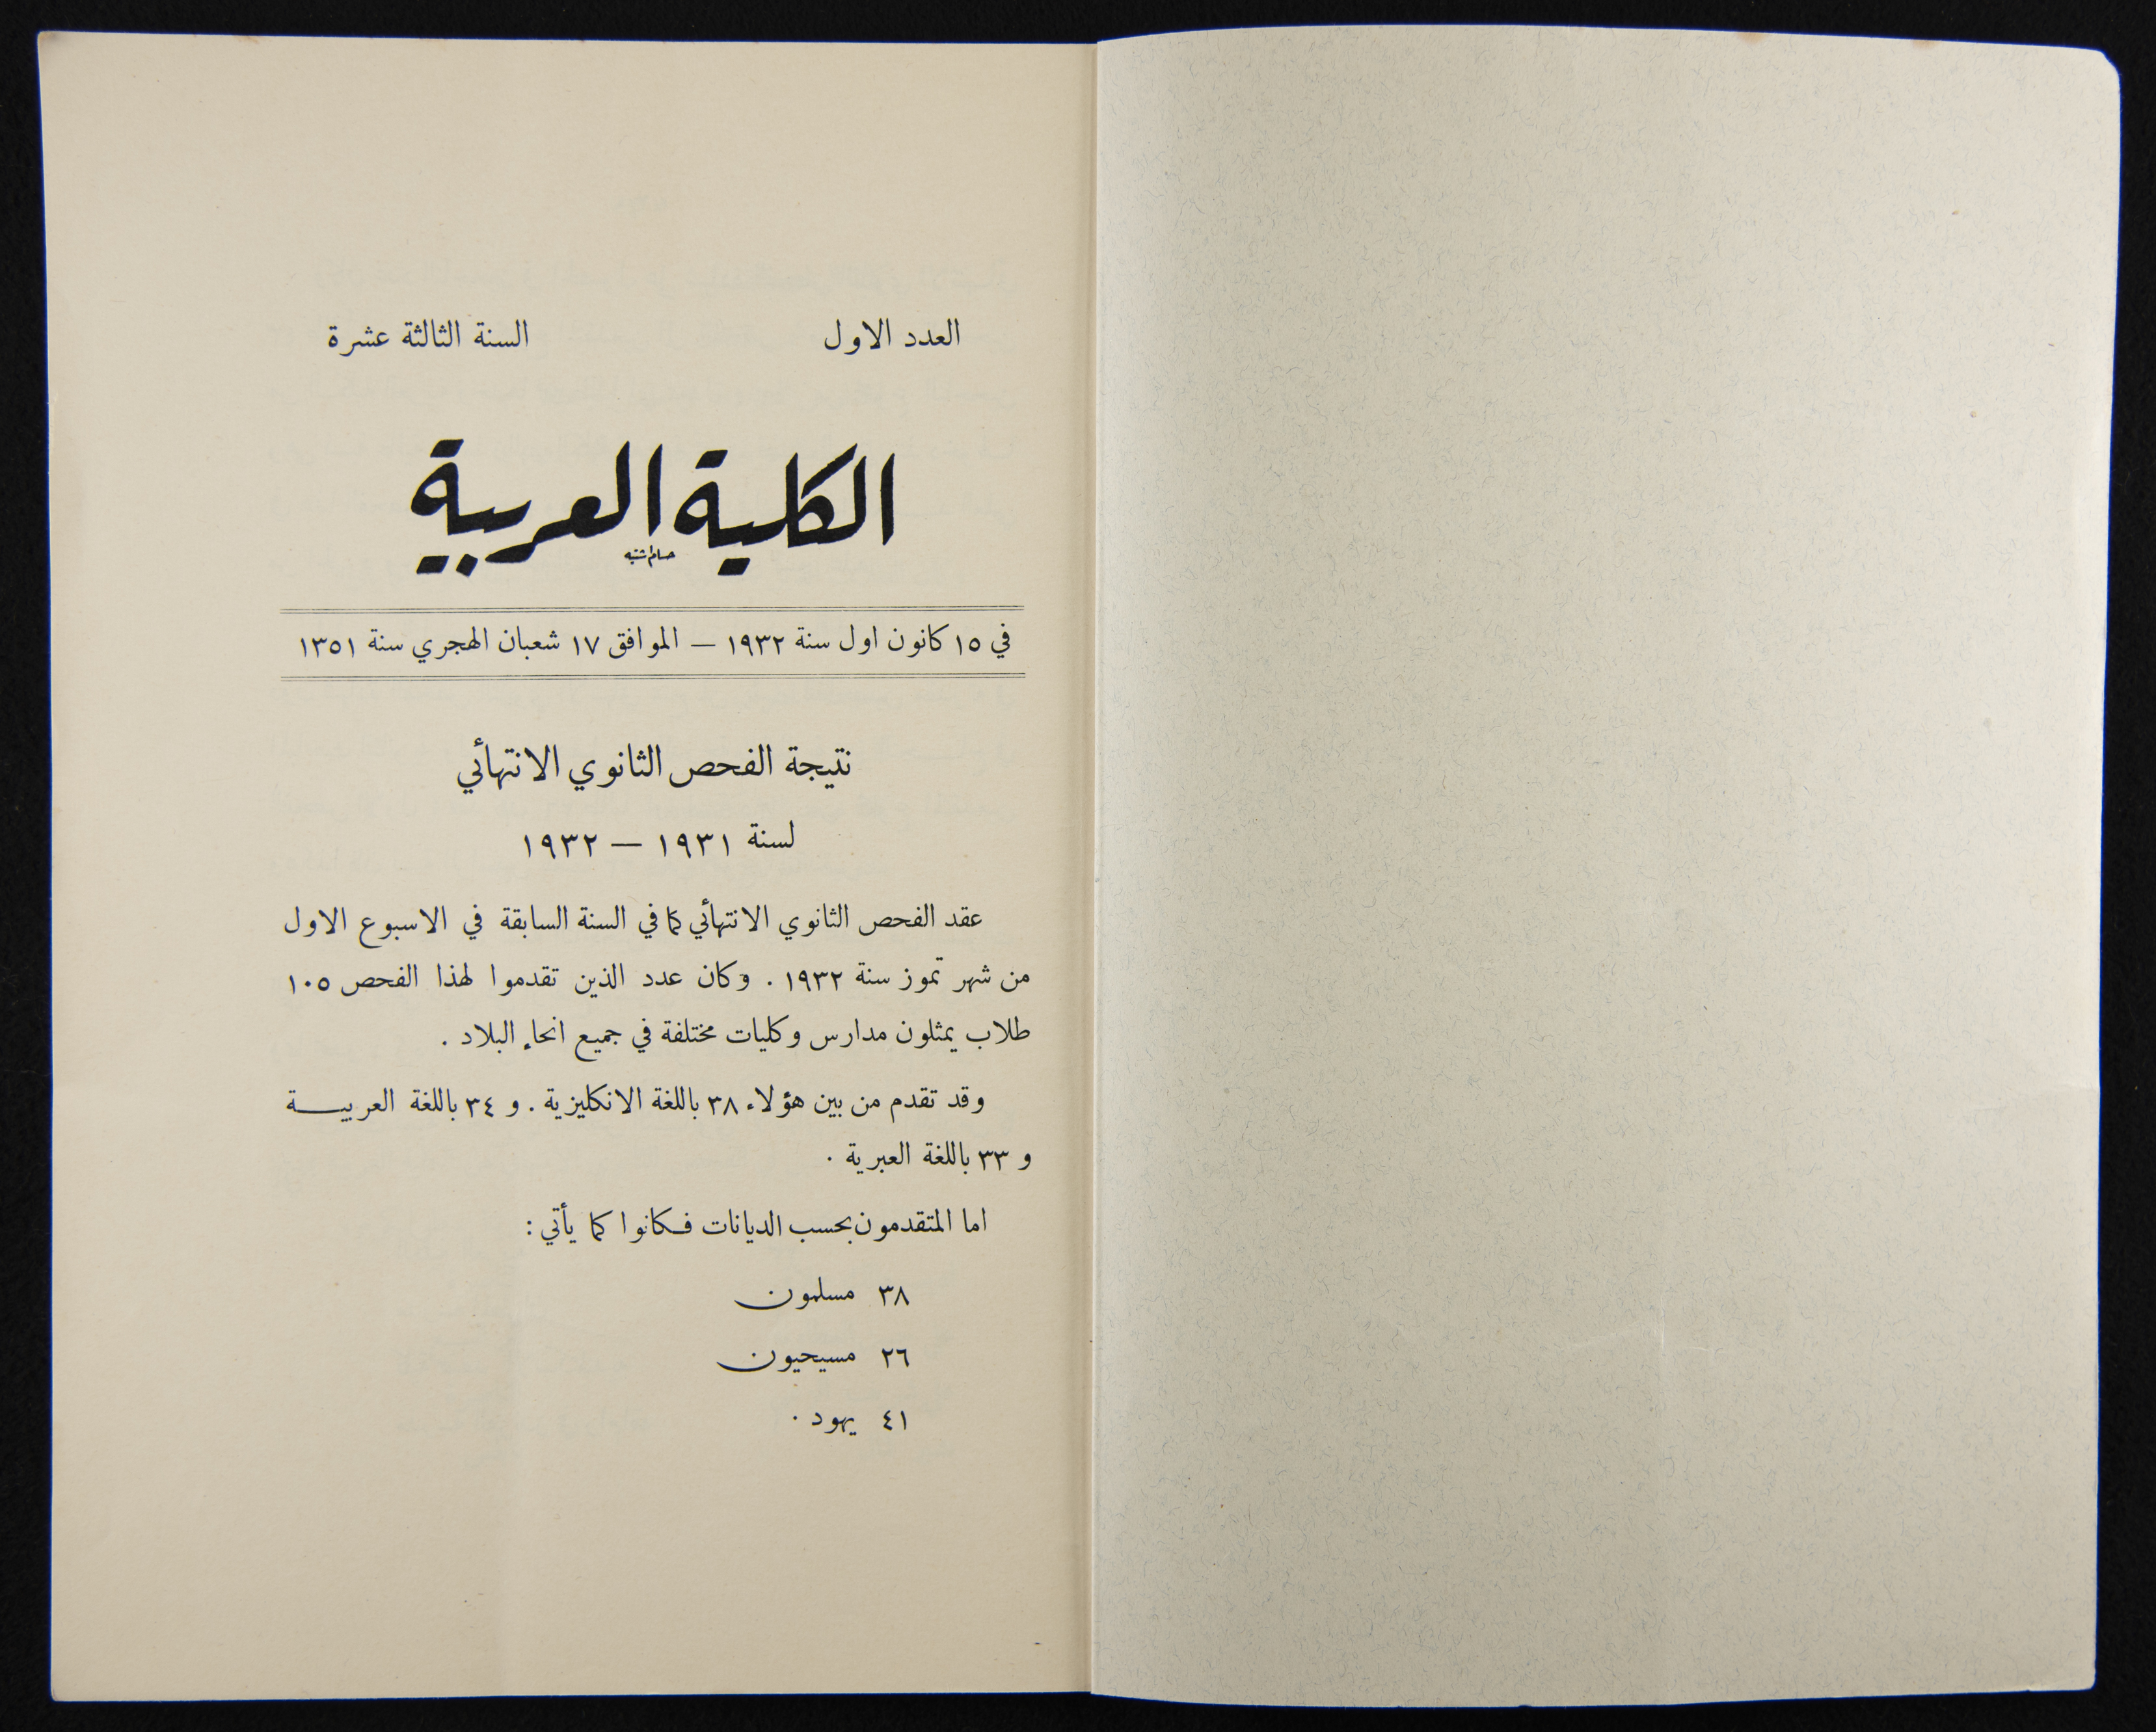 العدد الاول السنة الثالثة عشرة
الكلية العربية
في ١٥ كانون اول سنة ١٩٣٢ — الموافق ١٧ شعبان الهجري سنة ١٣٥١
نتيجة الفحص الثانوي الانتهائي
لسنة ١٩٣١ — ١٩٣٢
عقد الفحص الثانوي الانتهائي كما في السنة السابقة في الاسبوع الاول
من شهر تموز سنة ١٩٣٢ . وكان عدد الذين تقدموا لهذا الفحص ١٠٥
طلاب يمثلون مدارس وكليات مختلفة في جميع انحاء البلاد .
وقد تقدم من بين هؤلاء ٣٨ باللغة الانكليزية . و ٣٤ باللغة العربيــة
و ٣٣ باللغة العبرية .
اما المتقدمون بحسب الديانات فـكانوا كما يأتي :
٣٨ مسلمون
٢٦ مسيحيون
٤١ يهود .